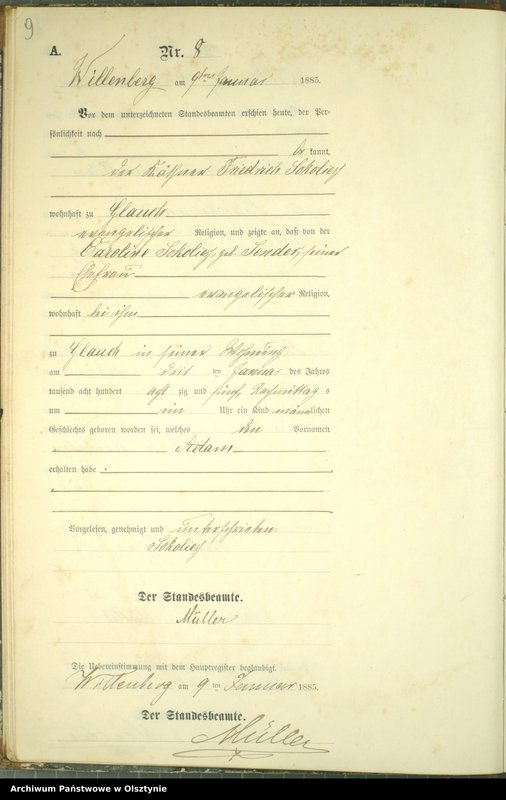 9
A.
Nr. 8
Willenberg am 9ten Januar 1885.
Vor dem unterzeichneten Standesbeamten erschien heute, der Per-
sönlichkeit nach
be kannt,
der Käthner Friedrich
wohnhaft zu Glauch
evangelischer Religion, und zeigte an, daß von der
Caroline geb. Sender, seiner
Ehefrau
evangelischer Religion,
wohnhaft bei ihm
zu Glauch in seiner Wohnung
am ten Januar des Jahres
tausend acht hundert acht zig und fünf, Nachmittags
um ein Uhr ein Kind männlichen
Geschlechts geboren worden sei, welches den Vornamen
Adam
erhalten habe.
Vorgelesen, genehmigt und unterschrieben.
Der Standesbeamte.
Müller
Die Uebereinstimmung mit dem Hauptregister beglaubigt.
Willenberg am 9 ten Januar 1885.
Der Standesbeamte.
Müller
Archiwum Państwowe w Olsztynie